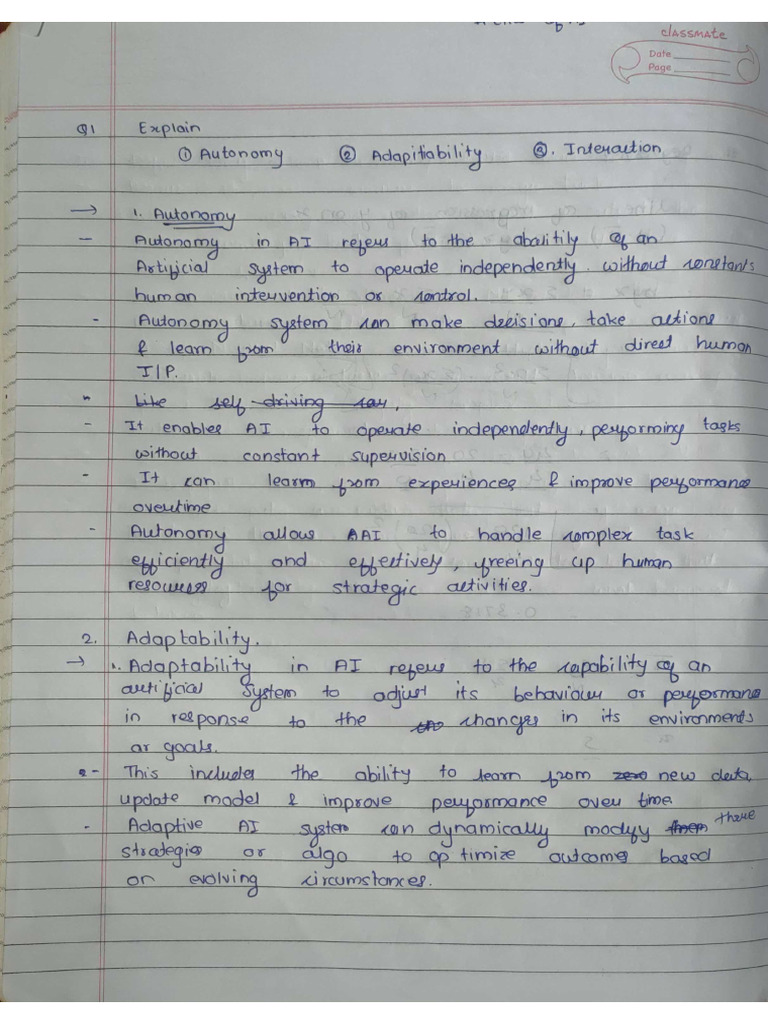 classmate
Date
Page
Q1 Explain
① Autonomy ② Adapitiability ③. Interaction
→ 1. Autonomy
- Autonomy in AI refers to the abalitily of an
Artificial system to operate independently without constants
human intervention or control.
- Autonomy system can make decisions, take actions
& learn from their environment without direct human
I/P.
" Like self-driving car.
- It enables AI to operate independently, performing tasks
without constant supervision
- It can learn from experiences & improve performance
overtime
- Autonomy allows AAI to handle complex task
efficiently and effectively, freeing up human
resources for strategic activities.
2. Adaptability.
→ 1. Adaptability in AI refers to the capability of an
artificial system to adjust its behaviour or performance
in response to the changes in its environments
ar goals.
2- This includes the ability to learn from new data,
update model & improve performance over time
- Adaptive AI system can dynamically modify there
strategies or algo to op timize outcomes based
on evolving circumstances.